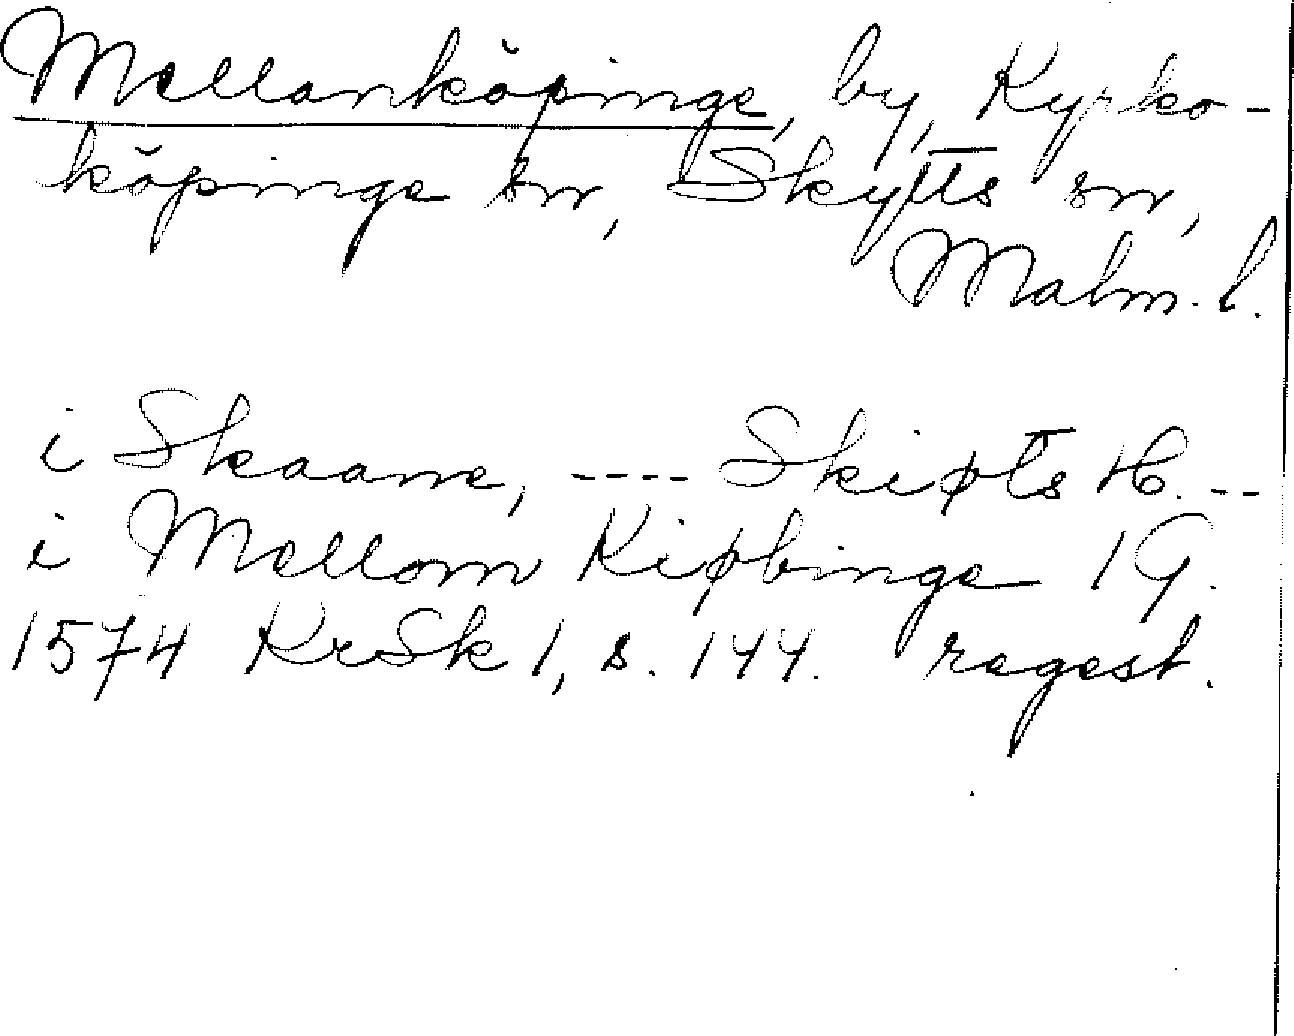 Mellanköpinge, by, Kyrko-
köpinge sn, Skytts sn,
Malm. l.
i Skaane, ---- Skipts H. --
i Mellom Kipbinge 1 G.
1574 KrSk 1, s. 144. regest.